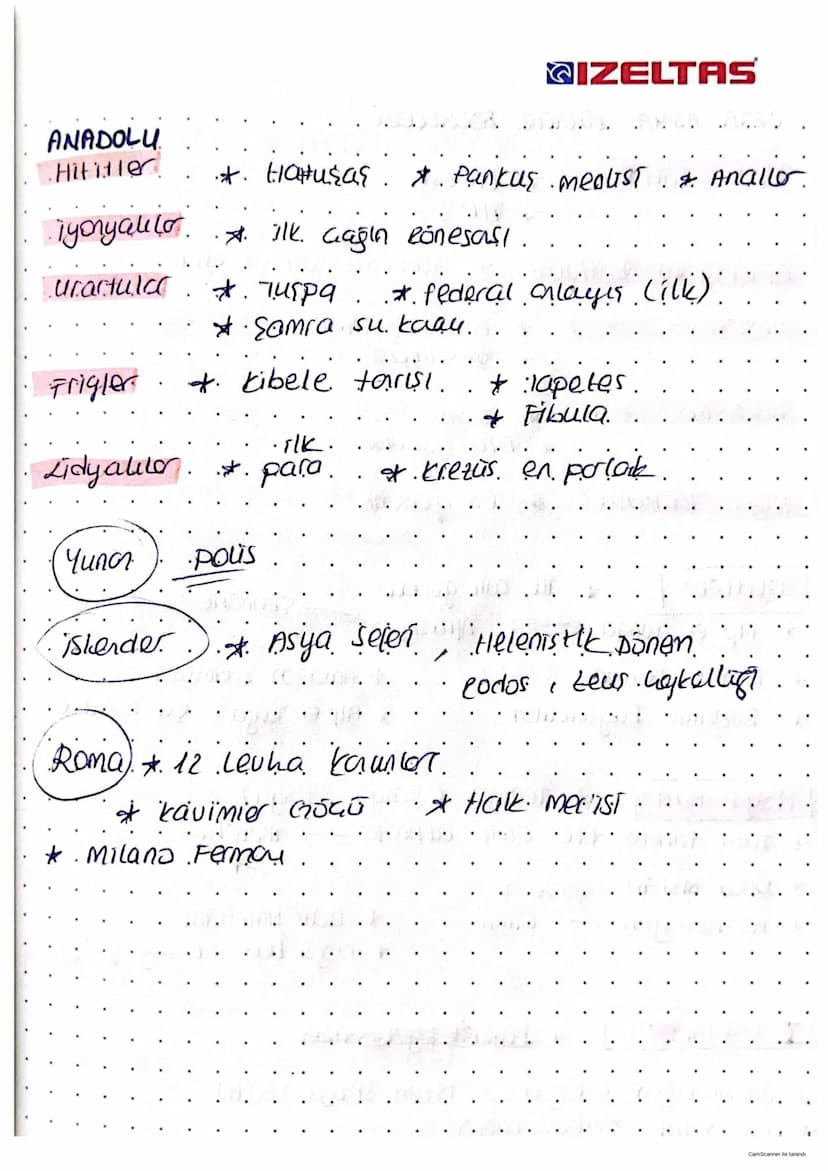 IZELTAS
ANADOLU
Hititler * Hattuşaş * Pankuş meclisi * Anallar
İyonyalılar * ilk çağın rönesası
Urartular * Tuşpa * federal anlayış (ilk)
* Şamra su kanalı
Frigler * Kibele tanrısı * Tapetes
* Fibula
Lidyalılar * ilk para * Krezüs en parlak
Yunan Polis
İskender * Asya Seferi, Helenistik Dönem
Rodos, Zeus heykelliği
Roma * 12 Levha Kanunları
* Kavimler Göçü * Halk meclisi
* Milano Fermanı
CamScanner ile tarandı